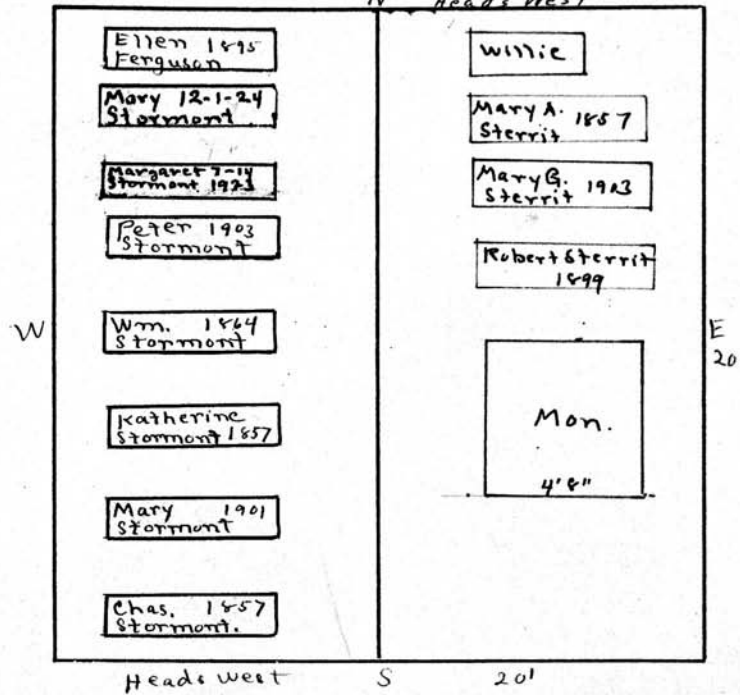 N Heads West
Ellen 1895
Ferguson
Mary 12-1-24
Stormont
Margaret 7-14
Stormont 1923
Peter 1903
Stormont
Wm. 1864
Stormont
Katherine
Stormont 1857
Mary 1901
Stormont
Chas. 1857
Stormont.
Willie
Mary A. 1857
Sterrit
Mary G. 1903
Sterrit
Robert Sterrit
1899
Mon.
4'8"
W
E
20
Heads West S 20'